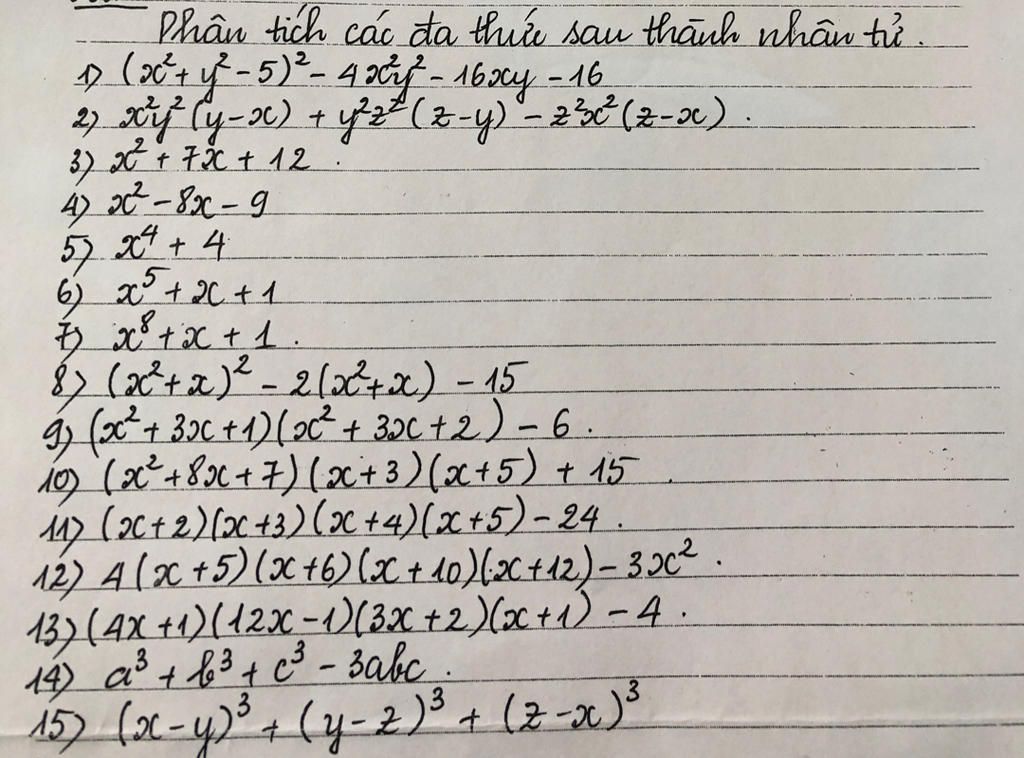 Phân tích các đa thức sau thành nhân tử.
1) (x² + y² - 5)² - 4x²y² - 16xy - 16
2) x²y² (y-x) + y²z² (z-y) - z²x² (z-x).
3) x² + 7x + 12.
4) x² - 8x - 9
5) x⁴ + 4
6) x⁵ + x + 1
7) x⁸ + x + 1.
8) (x² + x)² - 2(x² + x) - 15
9) (x² + 3x + 1)(x² + 3x + 2) - 6.
10) (x² + 8x + 7)(x + 3)(x + 5) + 15
11) (x+2)(x+3)(x+4)(x+5) - 24.
12) 4(x+5)(x+6)(x+10)(x+12) - 3x².
13) (4x+1)(12x-1)(3x+2)(x+1) - 4.
14) a³ + b³ + c³ - 3abc.
15) (x-y)³ + (y-z)³ + (z-x)³